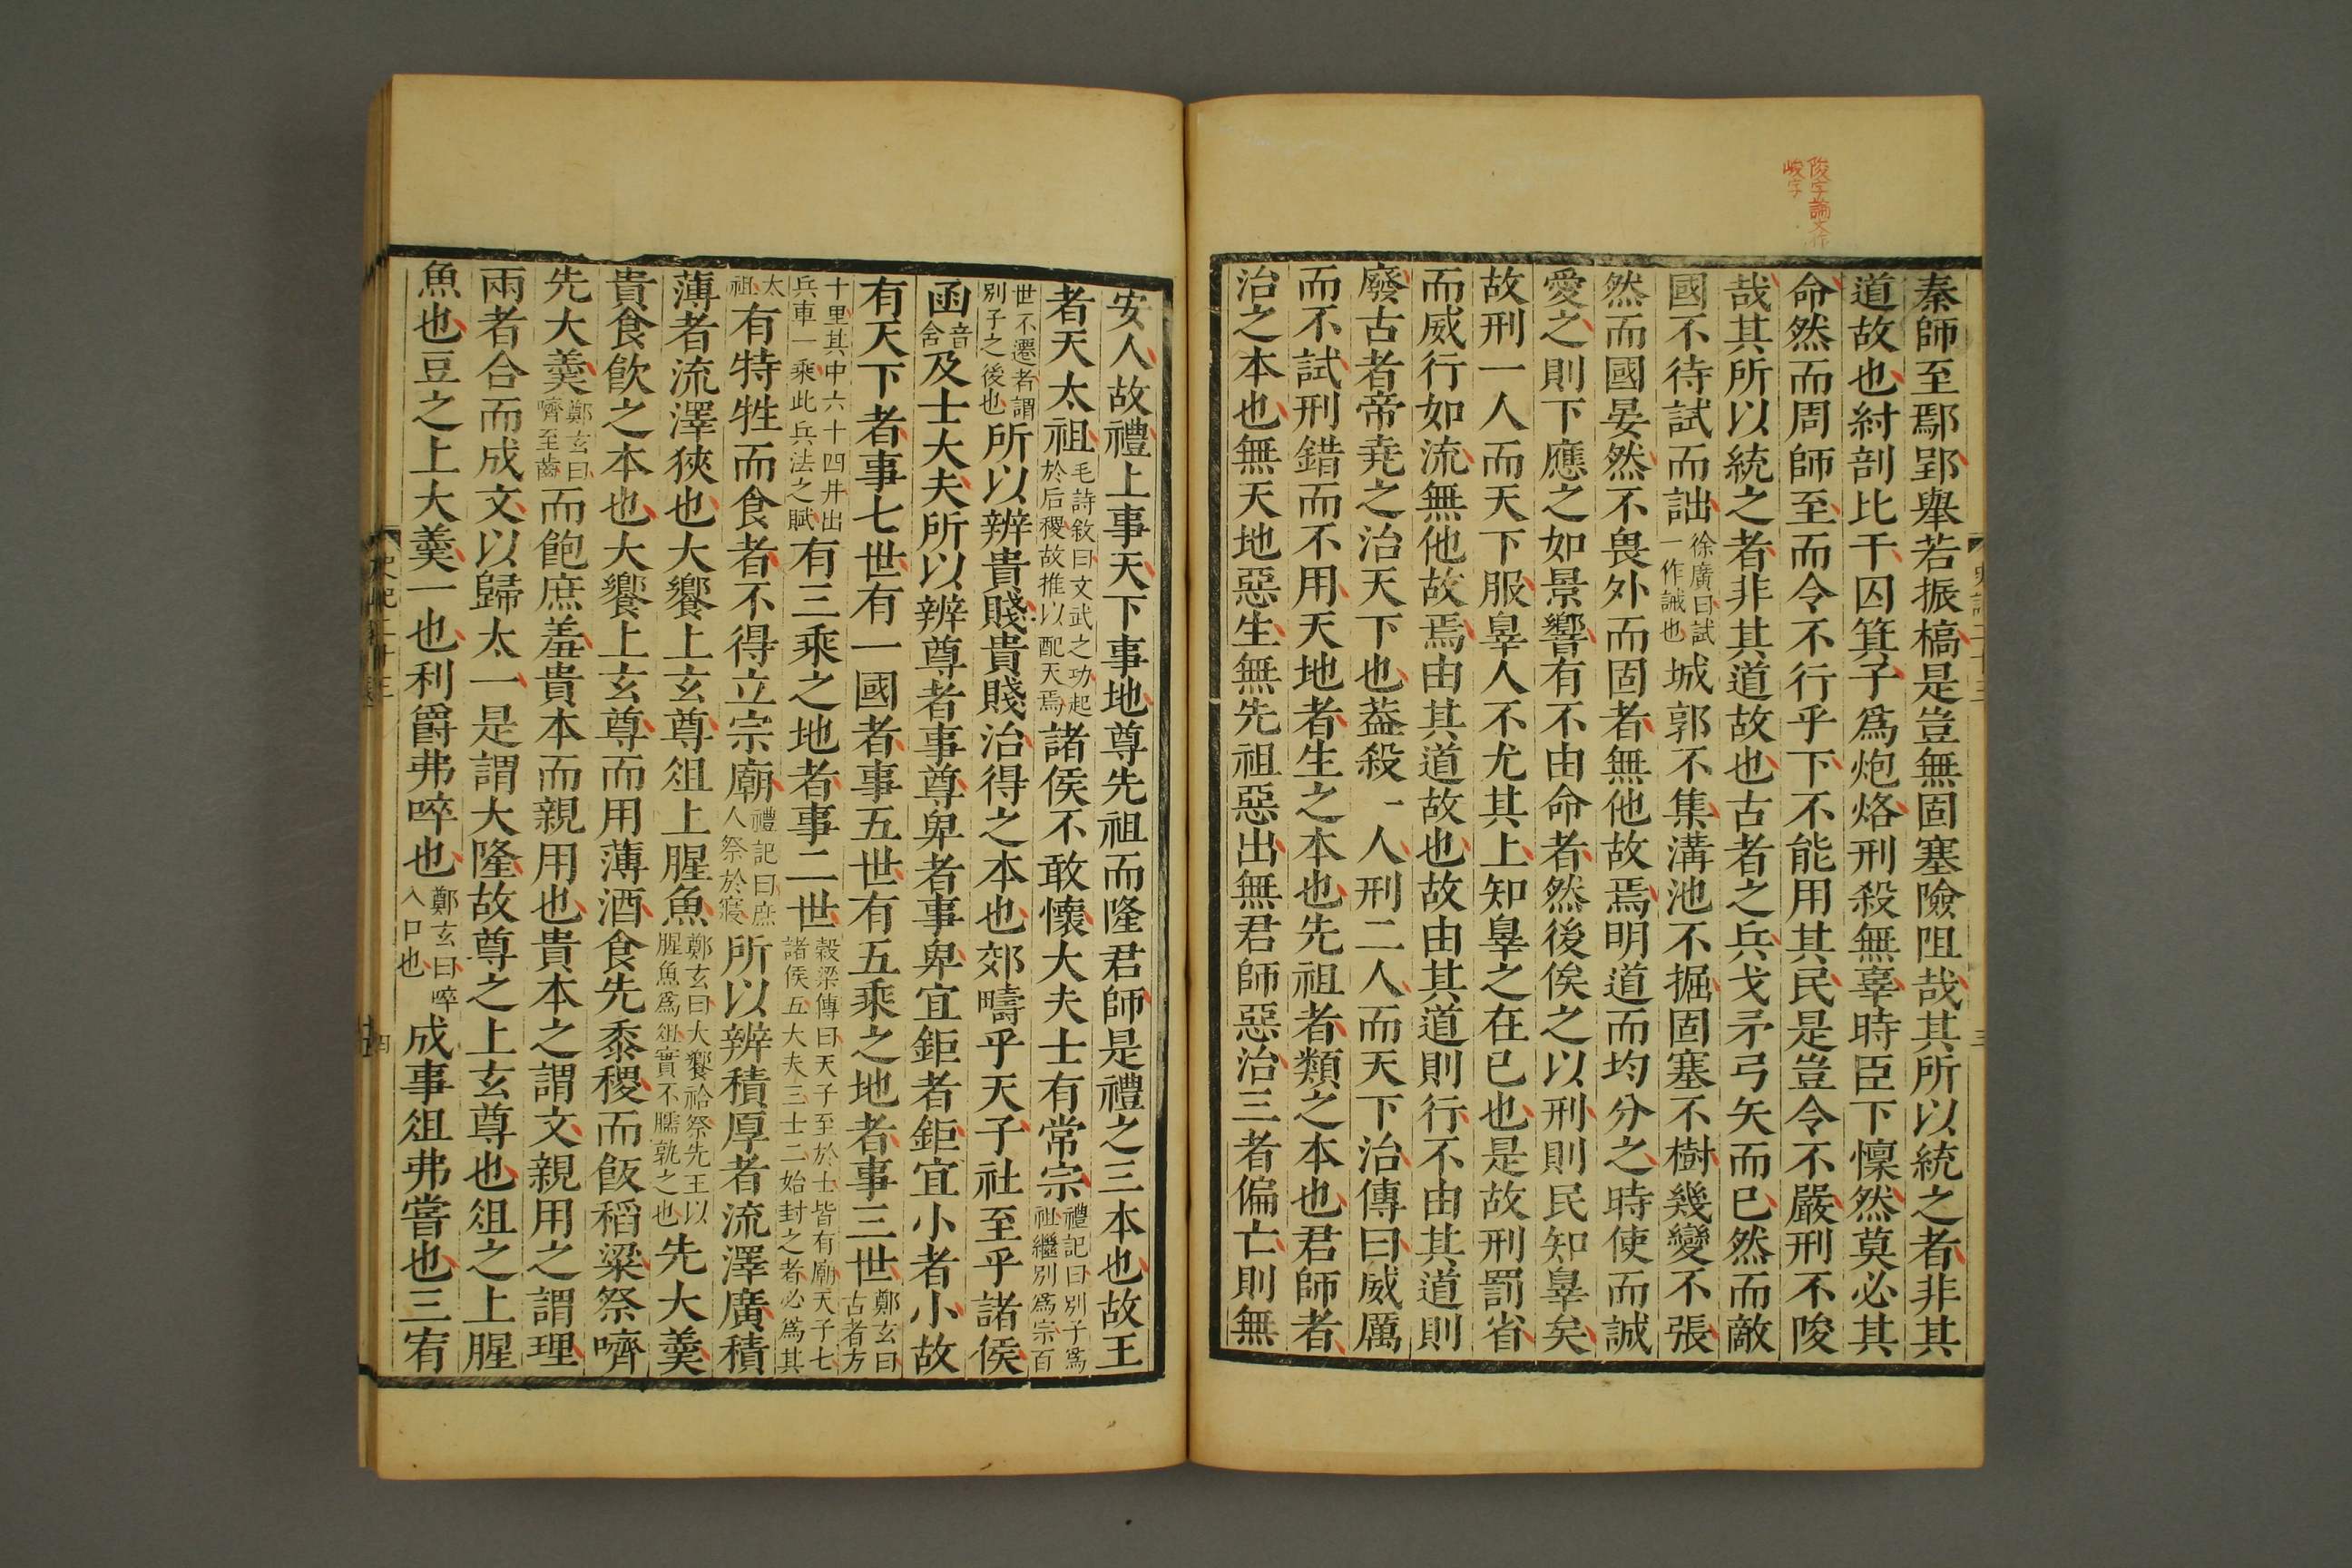 陖字論文作
峻字
秦師至鄢郢舉若振槁是豈無固塞險阻哉其所以統之者非其
道故也紂剖比干囚箕子爲炮烙刑殺無辜時臣下懍然莫必其
命然而周師至而令不行乎下不能用其民是豈令不嚴刑不陖
哉其所以統之者非其道故也古者之兵戈矛弓矢而已然而敵
國不待試而詘徐廣曰試一作誡也城郭不集溝池不掘固塞不樹幾變不張
然而國晏然不畏外而固者無他故焉明道而均分之時使而誠
愛之則下應之如景響有不由命者然後俟之以刑則民知辠矣
故刑一人而天下服辠人不尤其上知辠之在已也是故刑罰省
而威行如流無他故焉由其道故也故由其道則行不由其道則
廢古者帝堯之治天下也葢殺一人刑二人而天下治傳曰威厲
而不試刑錯而不用天地者生之本也先祖者類之本也君師者
治之本也無天地惡生無先祖惡出無君師惡治三者偏亡則無
安人故禮上事天下事地尊先祖而隆君師是禮之三本也故王
者天太祖毛詩敘曰文武之功起於后稷故推以配天焉諸侯不敢懷大夫士有常宗禮記曰別子爲祖繼別爲宗百
世不遷者謂別子之後也所以辨貴賤貴賤治得之本也郊疇乎天子社至乎諸侯
函音含及士大夫所以辨尊者事尊卑者事卑宜鉅者鉅宜小者小故
有天下者事七世有一國者事五世有五乘之地者事三世鄭玄曰古者方
十里其中六十四井出兵車一乘此兵法之賦有三乘之地者事二世穀梁傳曰天子至於士皆有廟天子七諸侯五大夫三士二始封之者必爲其
太祖有特牲而食者不得立宗廟禮記曰庶人祭於寢所以辨積厚者流澤廣積
薄者流澤狹也大饗上玄尊俎上腥魚鄭玄曰大饗祫祭先王以腥魚爲俎實不臑孰之也先大羹
貴食飲之本也大饗上玄尊而用薄酒食先黍稷而飯稻粱祭嚌
先大羹鄭玄曰嚌至齒而飽庶羞貴本而親用也貴本之謂文親用之謂理
兩者合而成文以歸太一是謂大隆故尊之上玄尊也俎之上腥
魚也豆之上大羹一也利爵弗啐也鄭玄曰啐入口也成事俎弗嘗也三宥